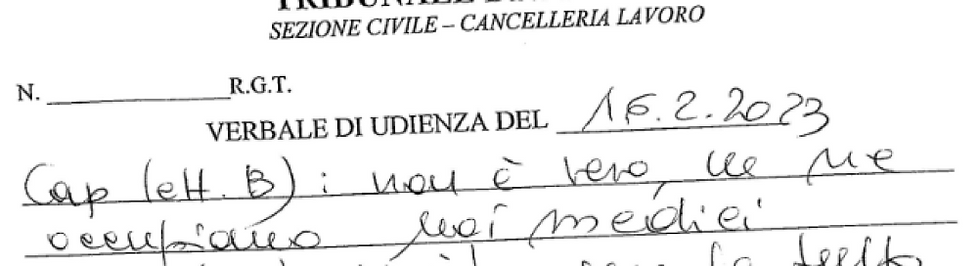 SEZIONE CIVILE – CANCELLERIA LAVORO
N. R.G.T.
VERBALE DI UDIENZA DEL 16.2.2023
Cap lett. B) : non è vero, ce ne
occupiamo noi medici